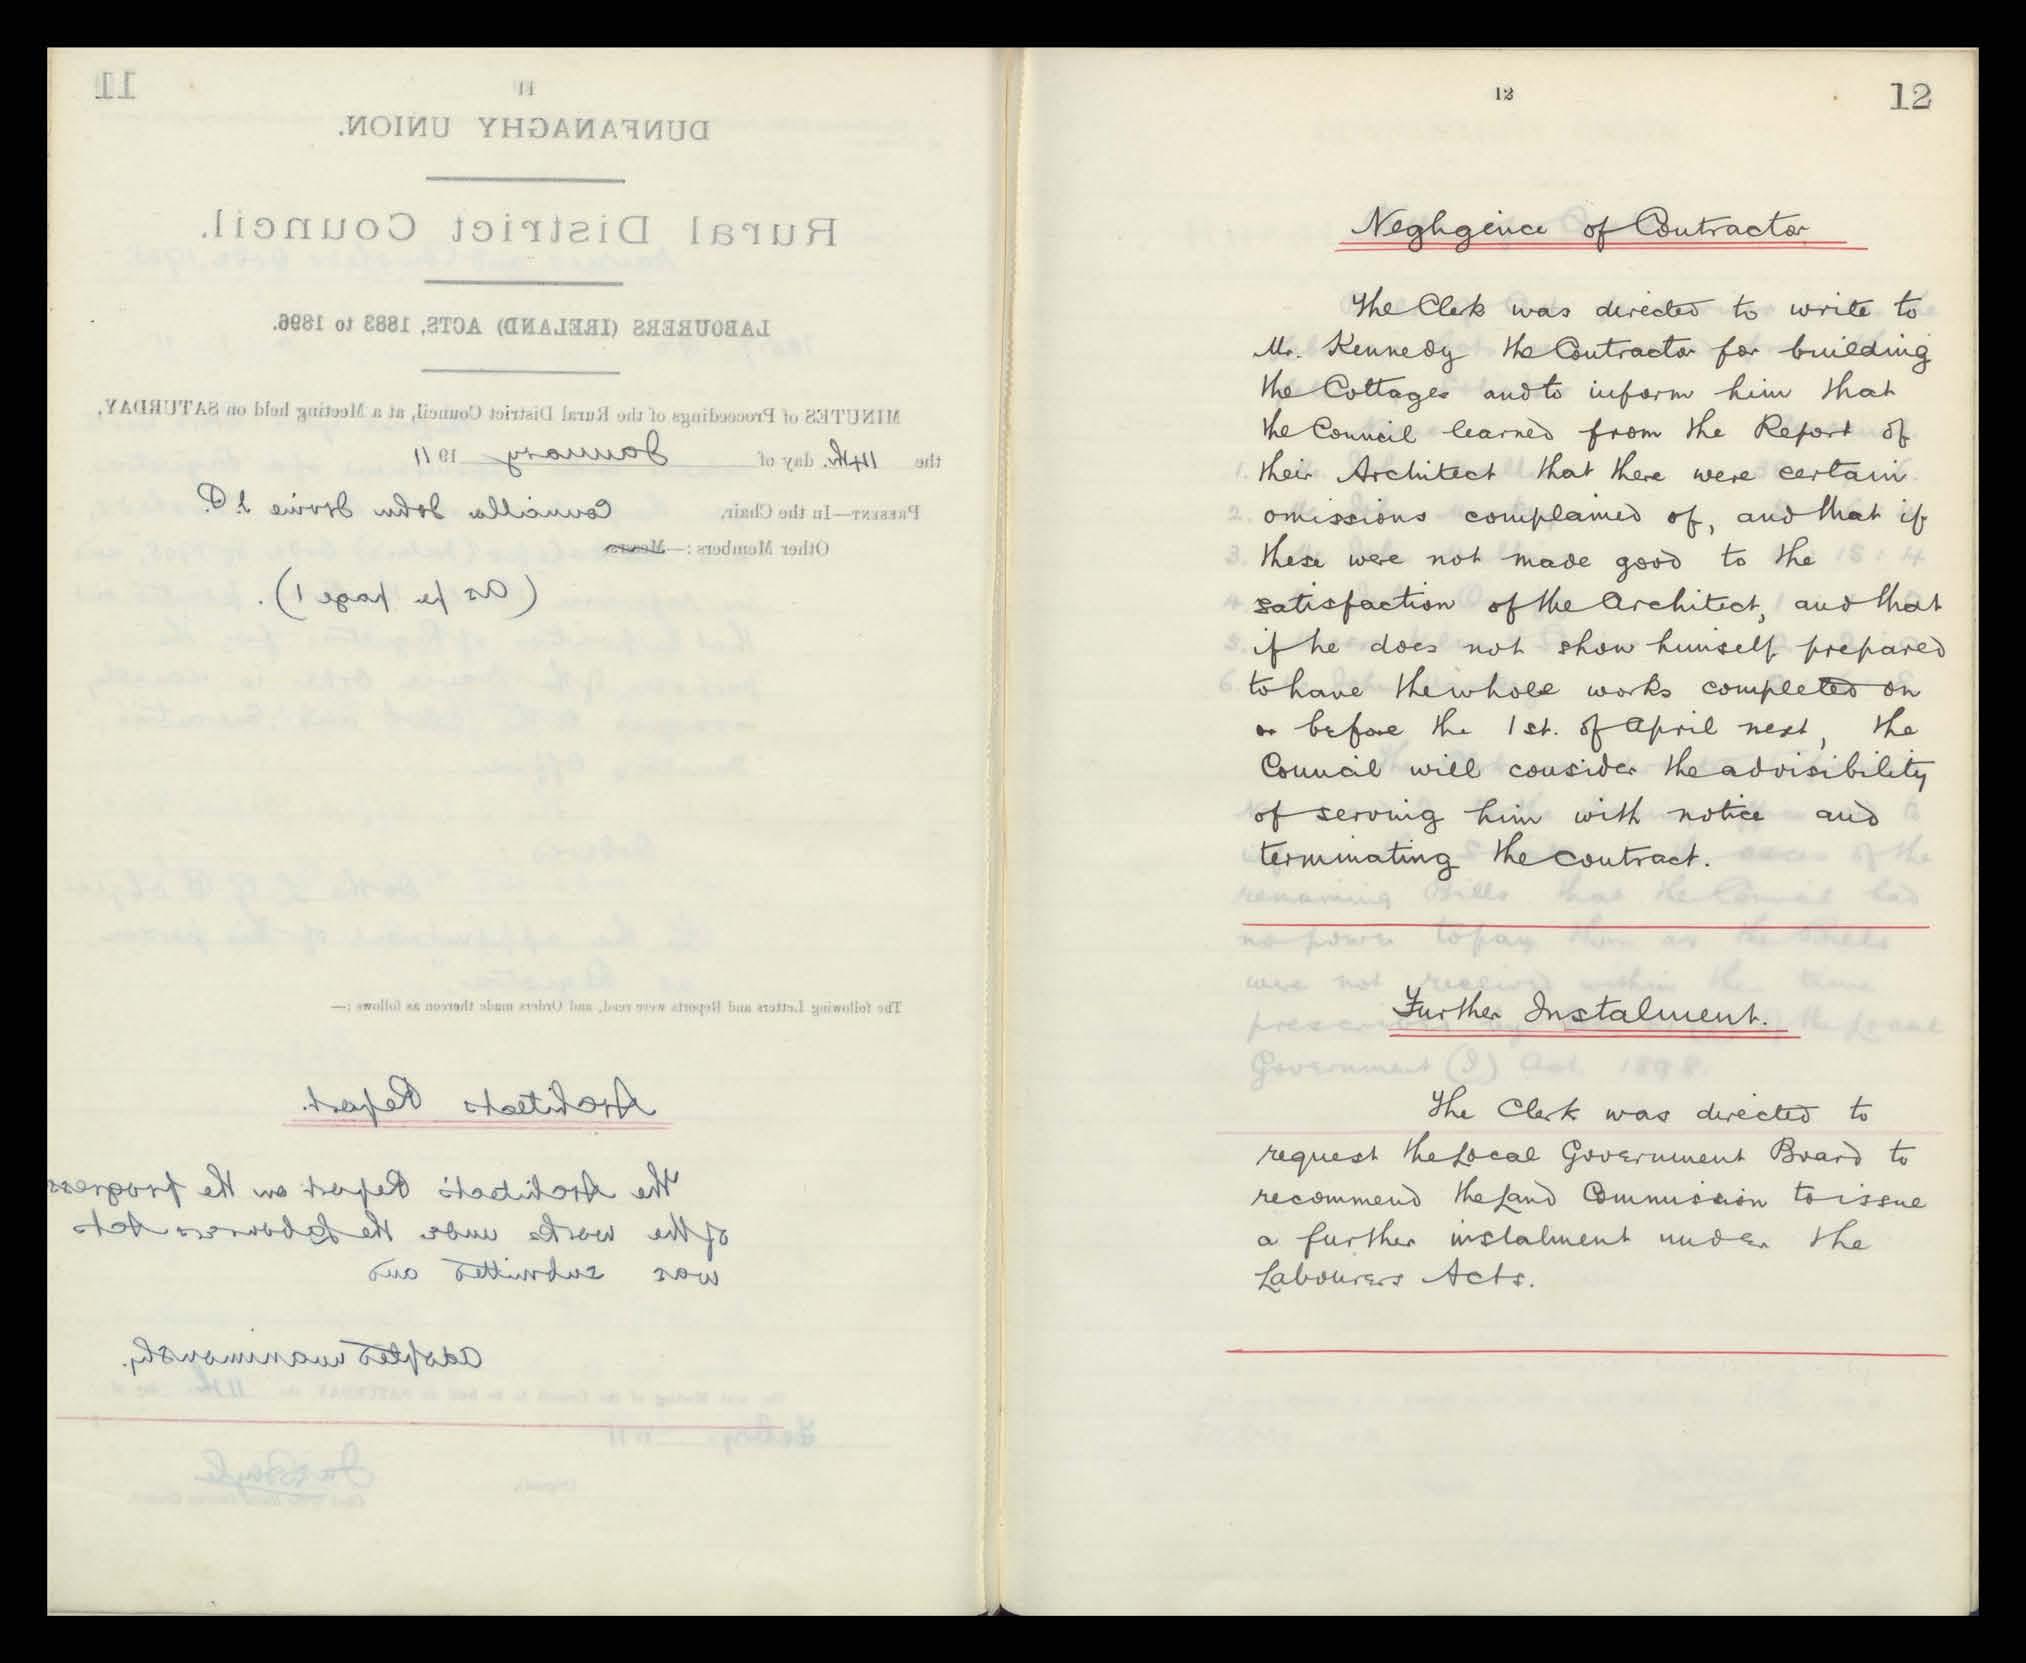 11
11
DUNFANAGHY UNION.
Rural District Council.
LABOURERS (IRELAND) ACTS, 1883 to 1896.
MINUTES of Proceedings of the Rural District Council, at a Meeting held on SATURDAY,
the 14th. day of January 1911
PRESENT—In the Chair, Councillor John Irvine J.P.
Other Members:—Messrs
(As per page 1).
The following Letters and Reports were read, and Orders made thereon as follows:—
Architects Report.
The Architect's Report on the progress
of the works under the Labourers Acts
was submitted and
adopted unanimously.
12
12
Negligence of Contractor
The Clerk was directed to write to
Mr. Kennedy the Contractor for building
the Cottages and to inform him that
the Council learned from the Report of
their Architect that there were certain
omissions complained of, and that if
these were not made good to the
satisfaction of the Architect, and that
if he does not show himself prepared
to have the whole works completed on
or before the 1st. of April next, the
Council will consider the advisibility
of serving him with notice and
terminating the contract.
Further Instalment.
The Clerk was directed to
request the Local Government Board to
recommend the Land Commission to issue
a further instalment under the
Labourers Acts.